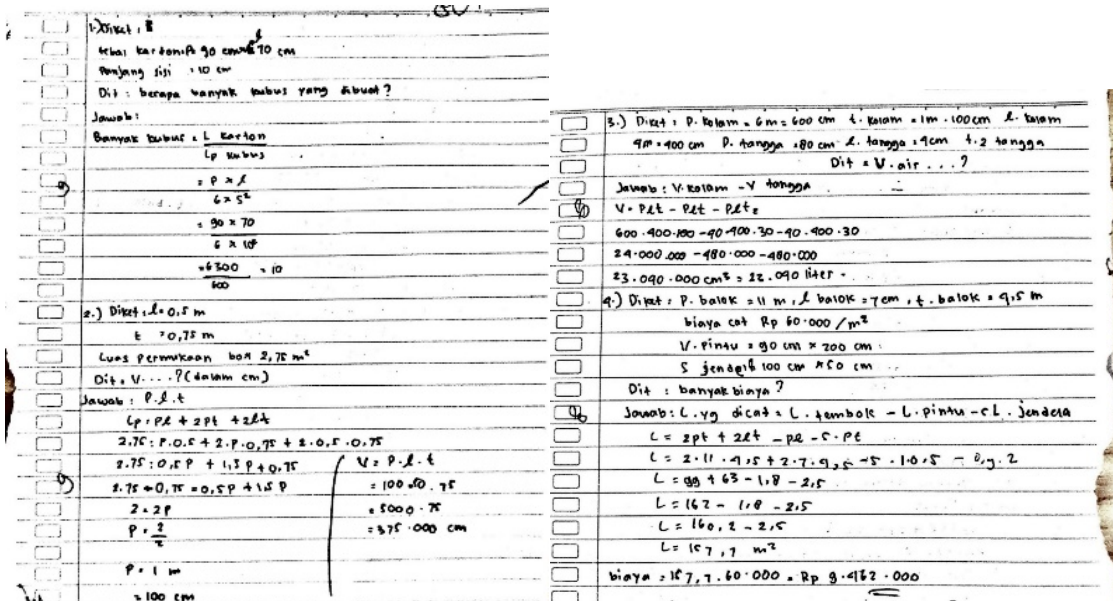 1.) Diket :
tebal karton : P 90 cm l 70 cm
Panjang sisi : 10 cm
Dit : berapa banyak kubus yang dibuat ?
Jawab :
Banyak kubus = L karton
Lp kubus
= P x l
6 x S²
= 90 x 70
6 x 10²
= 6300 = 10
600
2.) Diket : l = 0,5 m
t = 0,75 m
Luas permukaan box 2,75 m²
Dit : V . . . . ? (dalam cm)
Jawab : P . l . t
Lp : Pl + 2Pt + 2lt
2.75 : P.0.5 + 2.P.0,75 + 2.0,5.0,75
2.75 : 0,5P + 1,5P + 0,75
2.75 - 0,75 = 0,5P + 1,5P
2 = 2P
P = 2
2
P = 1 m
= 100 cm
V = P . l . t
= 100 . 50 . 75
= 5000 . 75
= 375.000 cm
3.) Diket : P. kolam = 6m = 600 cm t. kolam = 1m . 100cm l. kolam
4m = 400 cm P. tangga = 80 cm l. tangga = 4cm t. 2 tangga
Dit = V. air . . . ?
Jawab : V. kolam - V tangga
V = Plt - Plt - Plt₂
600.400.100 - 40.400.30 - 40.400.30
24.000.000 - 480.000 - 480.000
23.040.000 cm³ = 22.040 liter
4.) Diket : P. balok = 11 m, l balok = 7 cm, t. balok = 4,5 m
biaya cat Rp 60.000 / m²
V. Pintu = 90 cm x 200 cm
5 jendela 100 cm x 50 cm
Dit : banyak biaya ?
Jawab : L. yg dicat = L. tembok - L. pintu - 5 L. jendela
L = 2pt + 2lt - pl - 5 . Pt
L = 2.11.4,5 + 2.7.4,5 - 5.1.0,5 - 0,9.2
L = 99 + 63 - 1,8 - 2,5
L = 162 - 1,8 - 2,5
L = 160,2 - 2,5
L = 157,7 m²
biaya = 157,7 . 60.000 = Rp 9.462.000